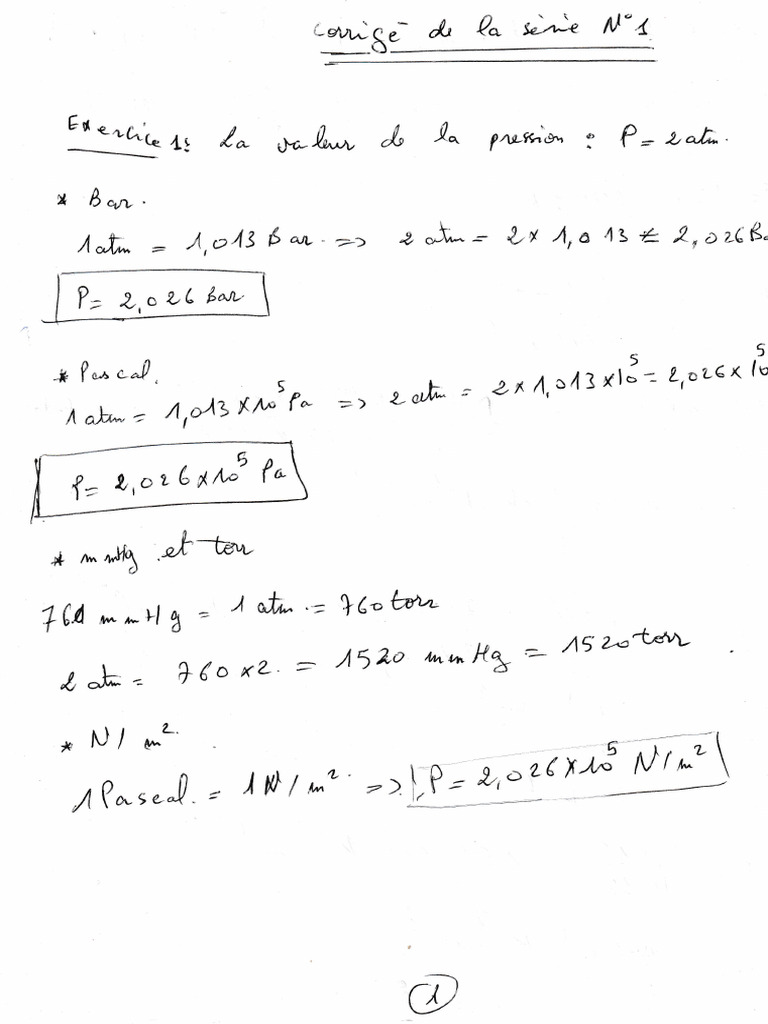 Corrigé de la série N°1
Exercice 1: La valeur de la pression : P = 2 atm.
* Bar.
1 atm = 1,013 Bar. => 2 atm = 2 x 1,013 = 2,026 Ba
P = 2,026 Bar
* Pascal.
1 atm = 1,013 x 10⁵ Pa => 2 atm = 2 x 1,013 x 10⁵ = 2,026 x 10⁵
P = 2,026 x 10⁵ Pa
* mmHg et torr
760 mmHg = 1 atm = 760 torr
2 atm = 760 x 2 = 1520 mmHg = 1520 torr
* N/m².
1 Pascal = 1 N/m² => P = 2,026 x 10⁵ N/m²
1